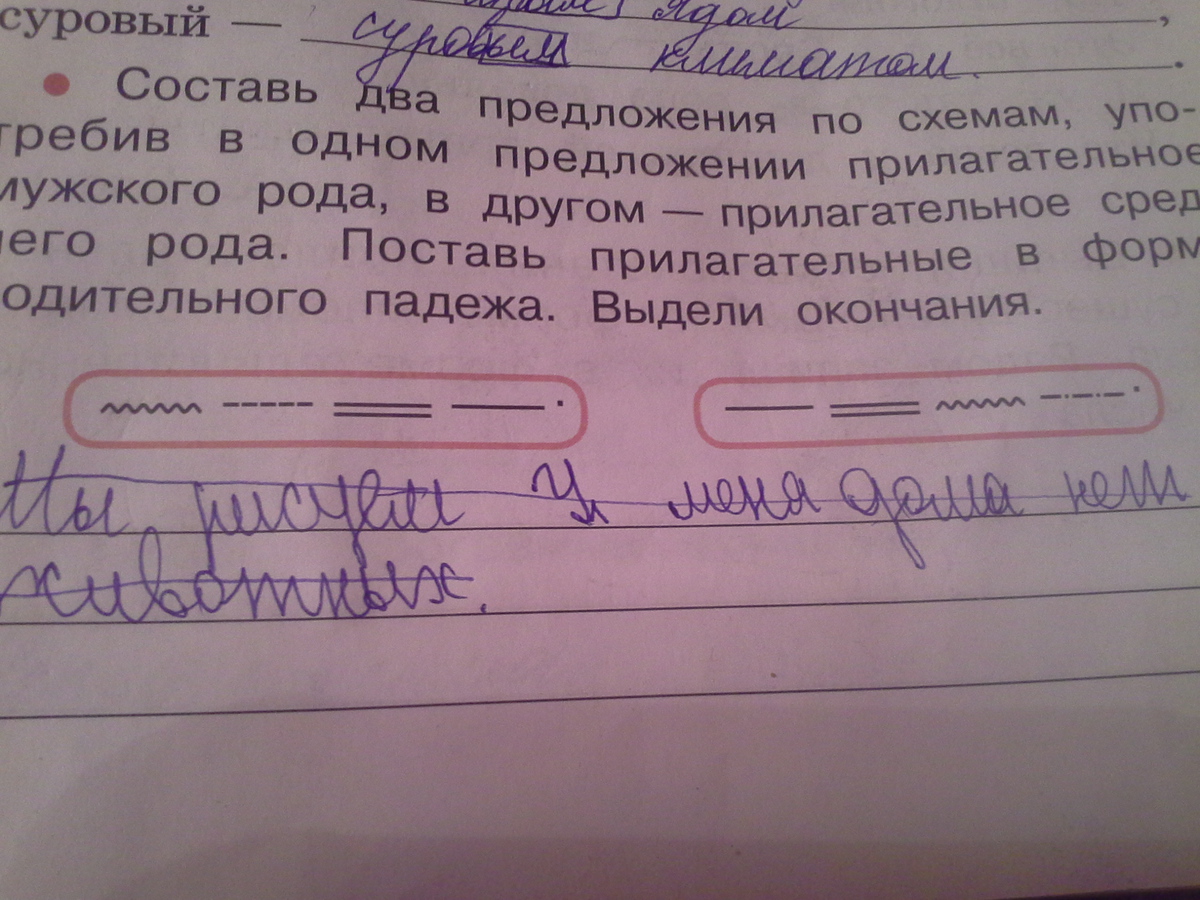 ядом ,
суровый — суровым климатом .
• Составь два предложения по схемам, упо-
требив в одном предложении прилагательное
мужского рода, в другом — прилагательное сред
него рода. Поставь прилагательные в форм
одительного падежа. Выдели окончания.
Мы рисуем У меня дома нет
животных.